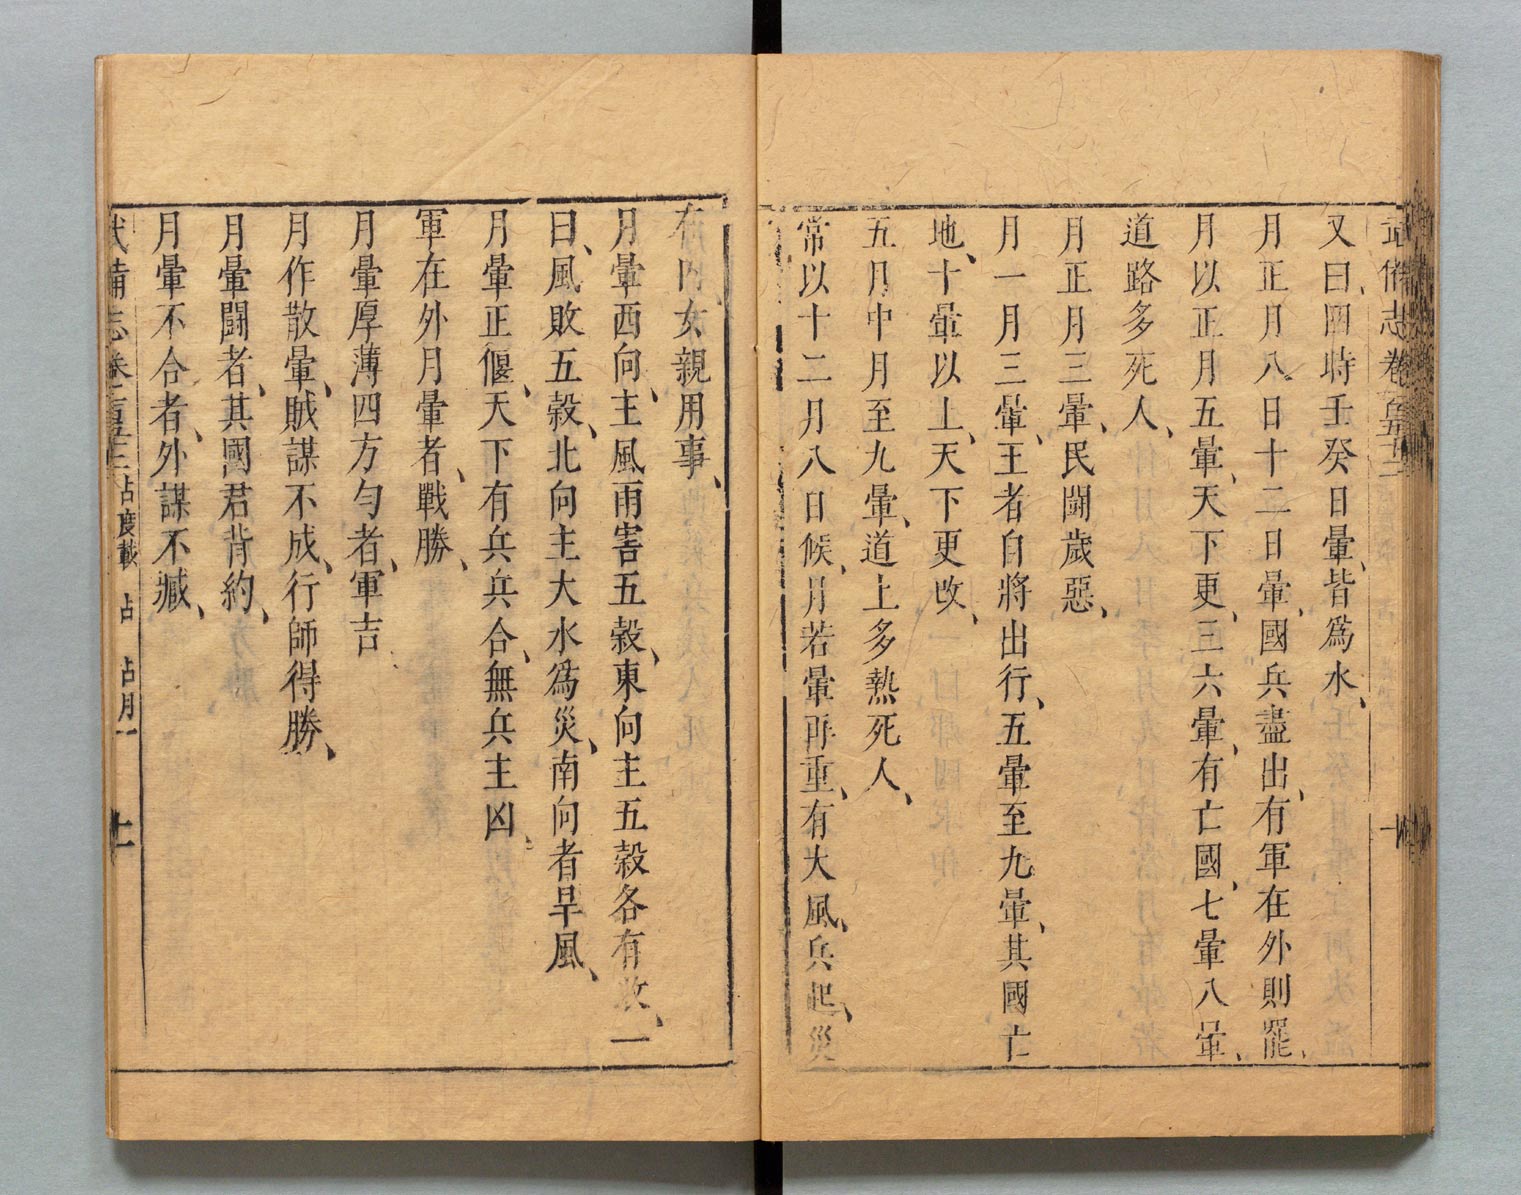 武備志卷一百五十二
又曰、四時壬癸日暈、皆為水、
月正月八日十二日暈、國兵盡出、有軍在外則罷、
月以正月五暈、天下更、三六暈、有亡國、七暈八暈、
道路多死人、
月正月三暈、民鬪歲惡、
月一月三暈、王者自將出行、五暈至九暈、其國亡
地、十暈以上、天下更改、
五月中月至九暈、道上多熱死人、
常以十二月八日候、月若暈再重、有大風、兵起、災
在內、女親用事、
月暈西向、主風雨害五穀、東向主五穀各有敗、一
曰、風敗五穀、北向主大水為災、南向者旱風、
月暈正偃、天下有兵兵合、無兵主凶、
軍在外月暈者、戰勝、
月暈厚薄四方匀者、軍吉
月作散暈、賊謀不成、行師得勝、
月暈鬪者、其國君背約、
月暈不合者、外謀不臧、
武備志卷一百五十二 占度載 占 占月一 十